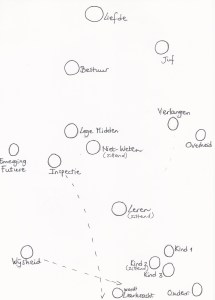 Liefde
Juf
Bestuur
Verlangen
Lege Midden
Overheid
Niet-Weten
(zittend)
Emerging
Future
Inspectie
Leren
(zittend)
Kind 1
Kind 2
(zittend)
Kind 3
Wijsheid
wordt
Leerkracht
Ouder